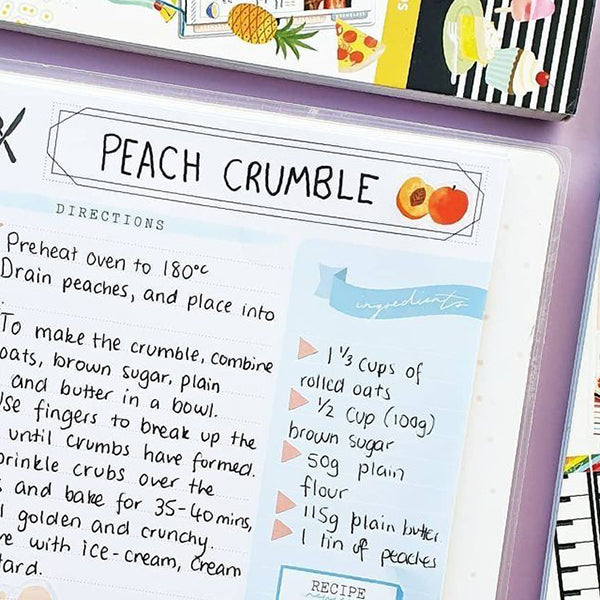 PEACH CRUMBLE
DIRECTIONS
Preheat oven to 180°c
Drain peaches, and place into
To make the crumble, combine
oats, brown sugar, plain
and butter in a bowl.
Use fingers to break up the
until crumbs have formed.
prinkle crubs over the
and bake for 35-40 mins,
golden and crunchy.
with ice-cream, cream
tard.
ingredients
1 1/3 cups of
rolled oats
1/2 cup (100g)
brown sugar
50g plain
flour
115g plain butter
1 tin of peaches
RECIPE